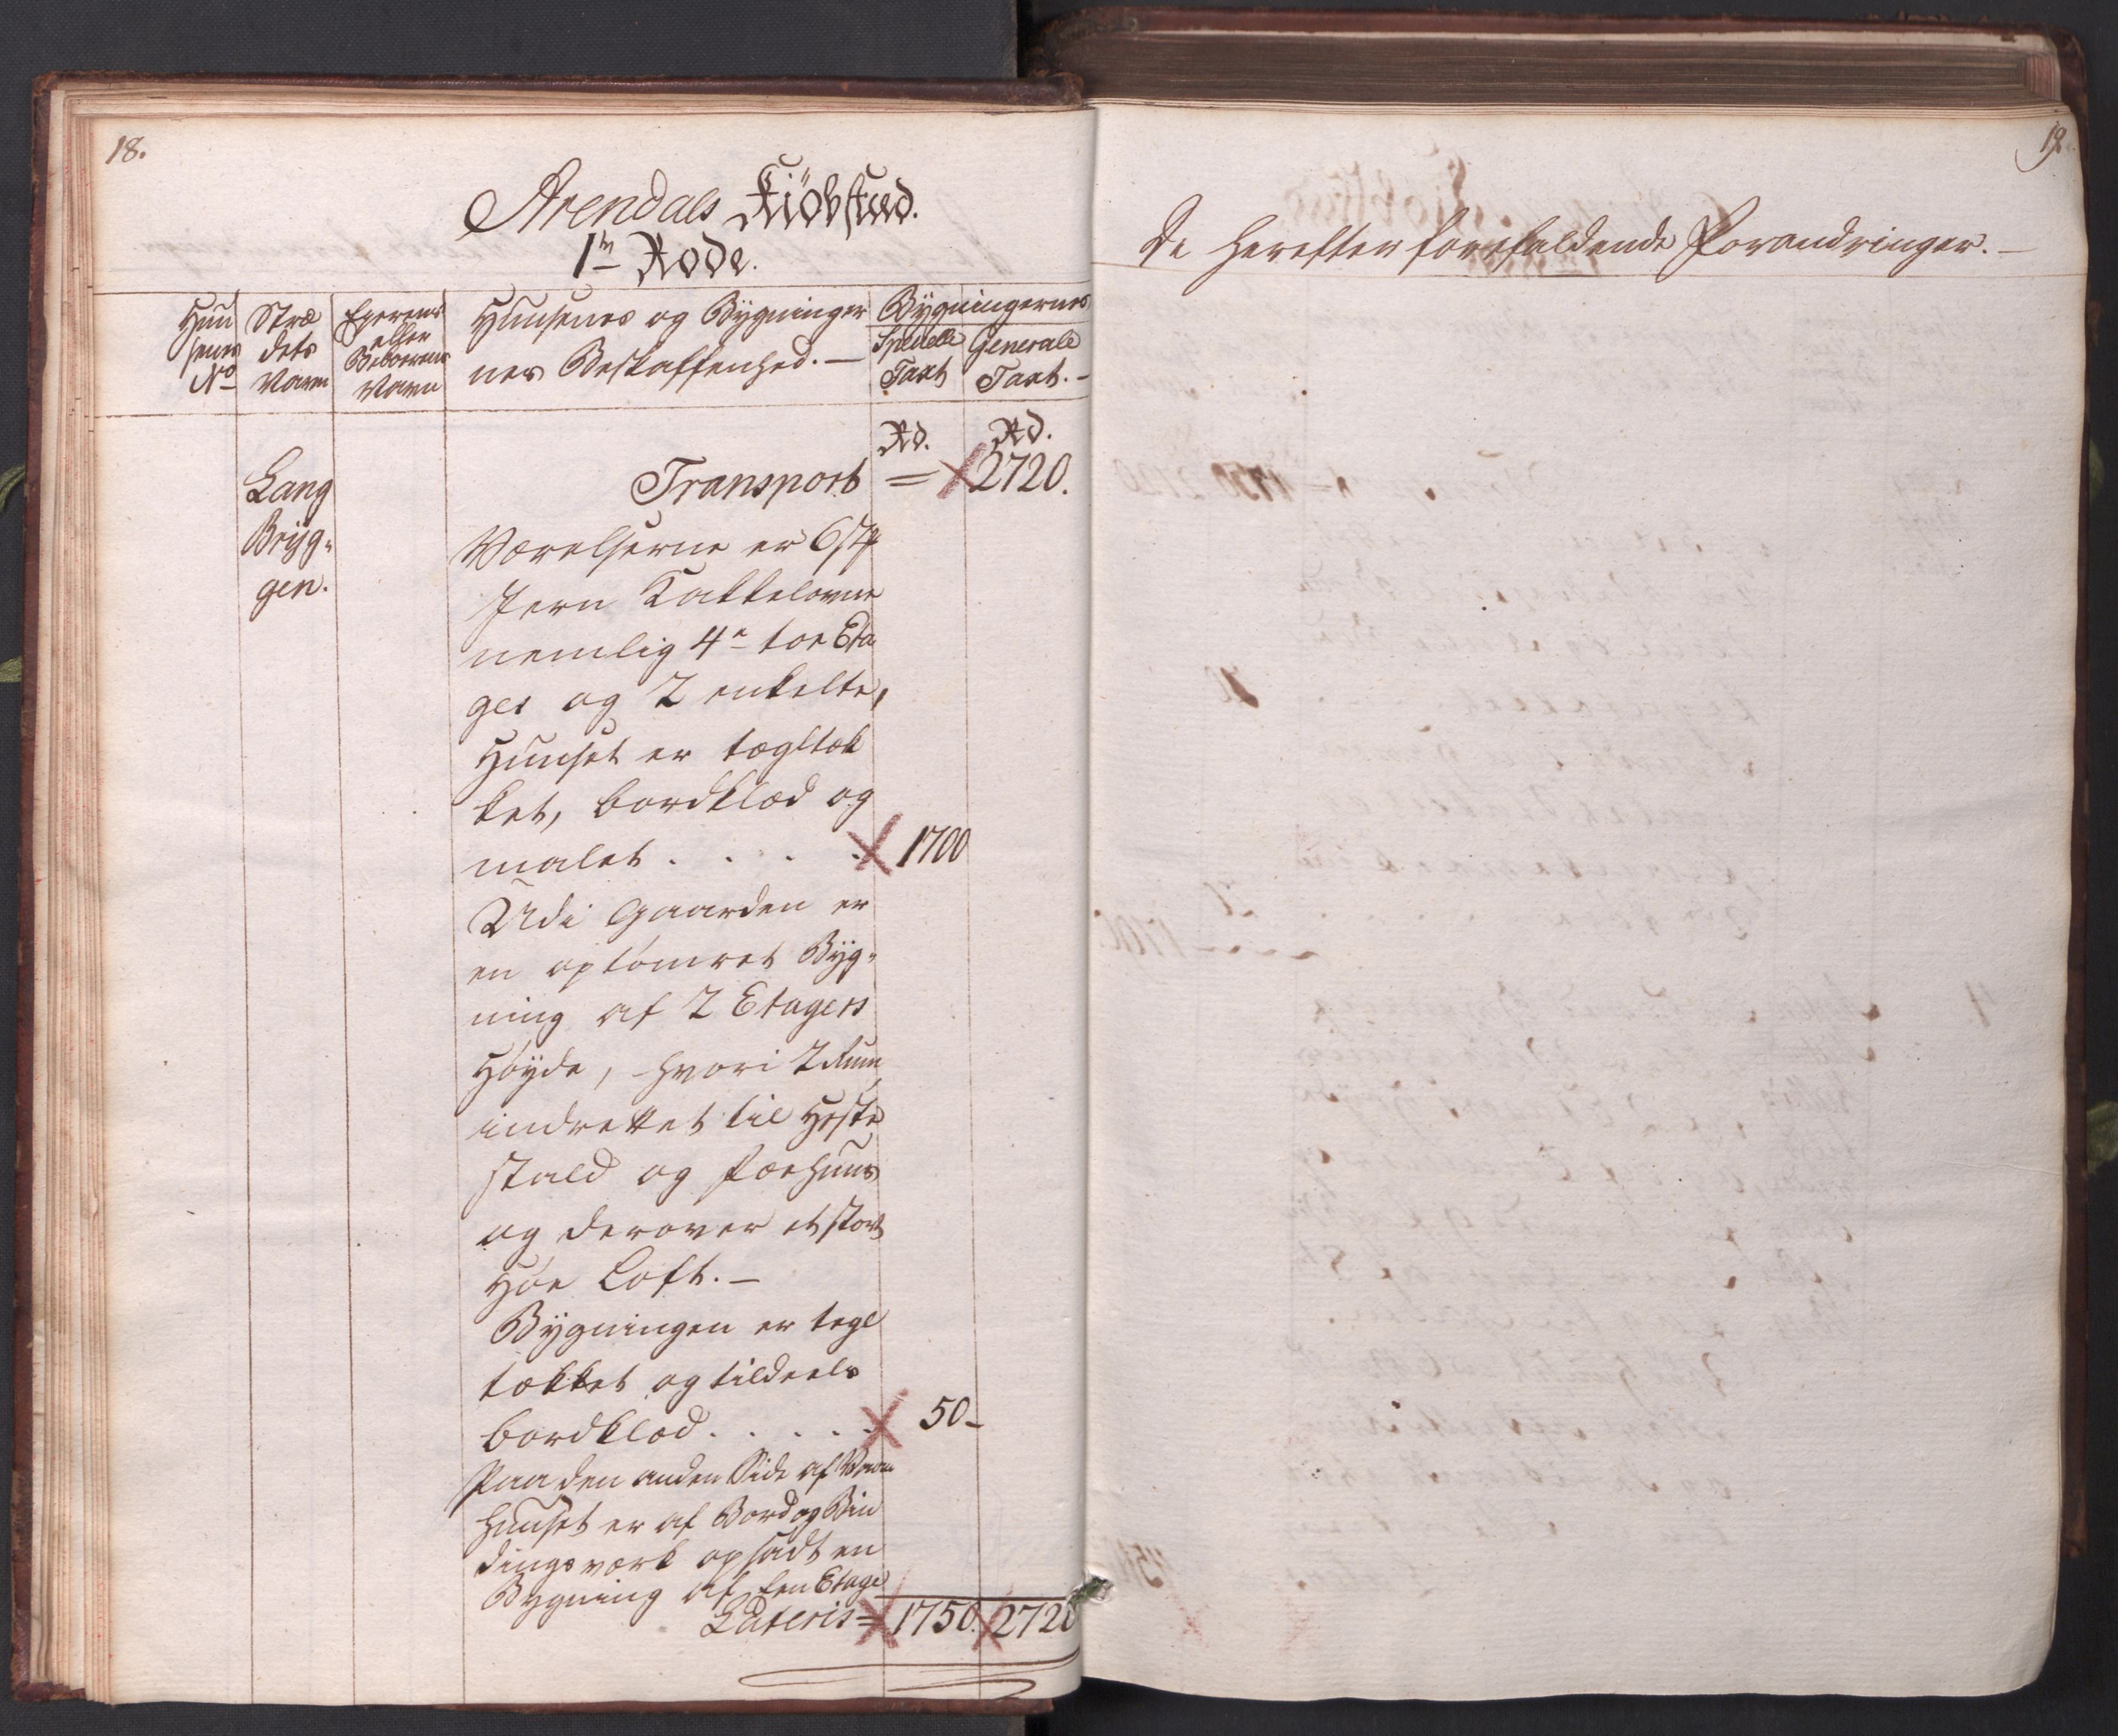 18.
Arendals Kiöbstæd.
1te Rode.
Huu
senes
No
Stræ
dets
Navn
Eyerens
eller
Beboerens
Navn
Huusenes og Bygninger
nes Beskaffenhed. —
Bygningernes
Specielle
Taxt
Generale
Taxt. -
Rd.
Rd.
Lang
Bryg-
gen.
Transport = 2720.
Værelserne er 6 stk
Jern Kakkelovne
nemlig 4re toe Eta
ges og 2 enkelte,
Huuset er tægltæk
ket, bordklæd og
malet . . . . 1700
Udi Gaarden er
en optømret Byg-
ning af 2 Etagers
Høyde, hvori 2 Rum
indrettet til Heste
stald og Fæehuus
og derover et stort
Høe Loft. —
Bygningen er tegl
tækket og tildeels
bordklæd . . . . . 50 -
Paa den anden Side af Vaan
huuset er af Bord og Bin
dingsværk opsadt en
Bygning af een Etage
Lateris = 1750. 2720
19.
De herefter forefaldende Forandringer. —